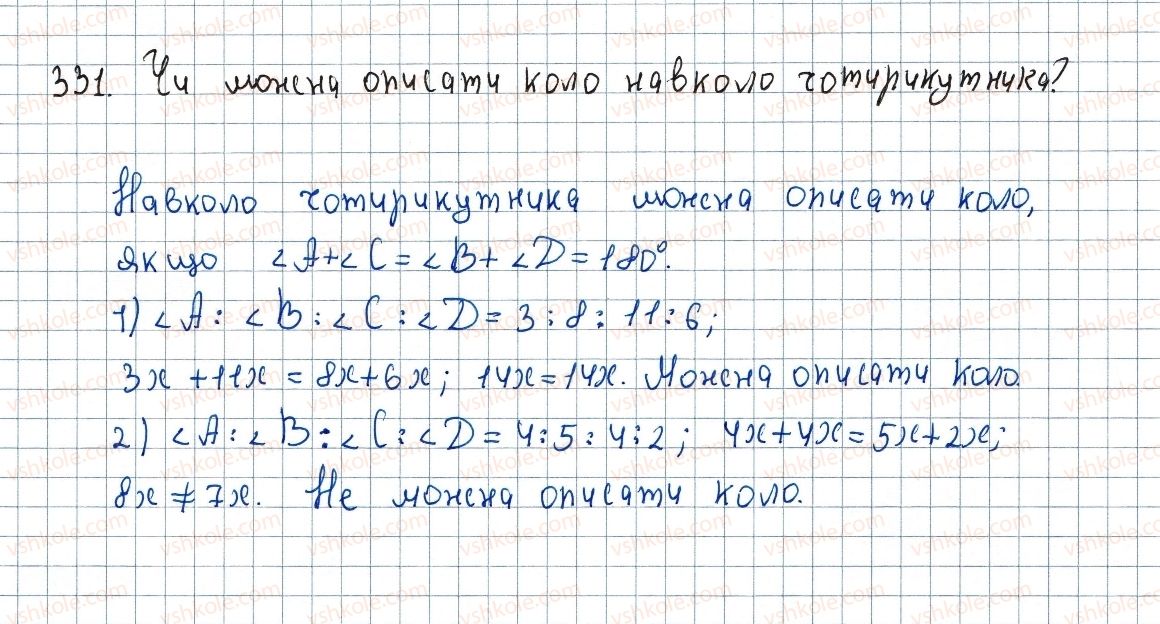 331. Чи можна описати коло навколо чотирикутника?
Навколо чотирикутника можна описати коло,
якщо ∠A+∠C=∠B+∠D=180°.
1) ∠A:∠B:∠C:∠D=3:8:11:6;
3x+11x=8x+6x; 14x=14x. Можна описати коло.
2) ∠A:∠B:∠C:∠D=4:5:4:2; 4x+4x=5x+2x;
8x≠7x. Не можна описати коло.